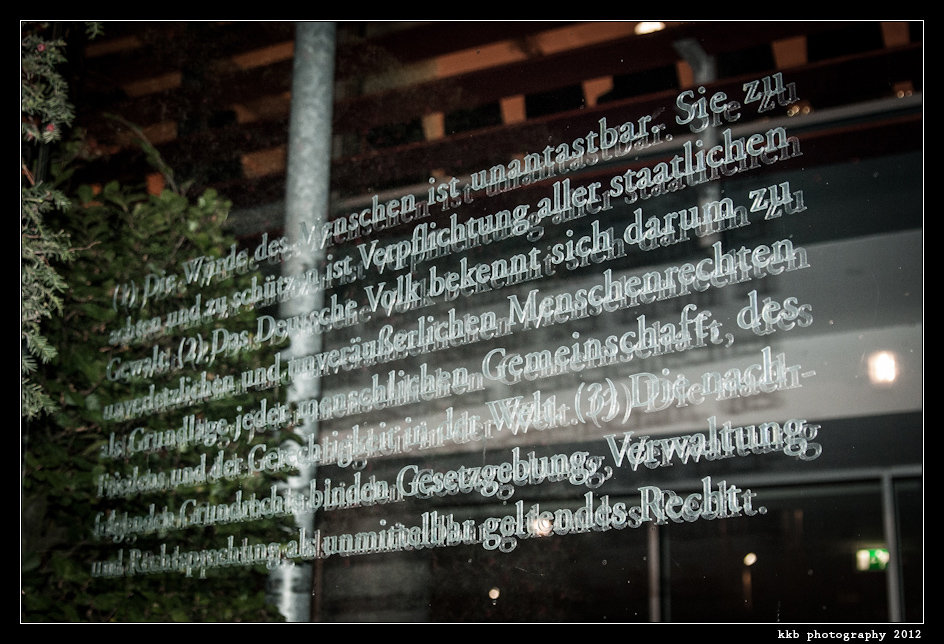 (1) Die Würde des Menschen ist unantastbar. Sie zu
achten und zu schützen ist Verpflichtung aller staatlichen
Gewalt. (2) Das Deutsche Volk bekennt sich darum zu
unverletzlichen und unveräußerlichen Menschenrechten
als Grundlage jeder menschlichen Gemeinschaft, des
Friedens und der Gerechtigkeit in der Welt. (3) Die nach-
folgenden Grundrechte binden Gesetzgebung, Verwaltung
und Rechtsprechung als unmittelbar geltendes Recht.
kkb photography 2012